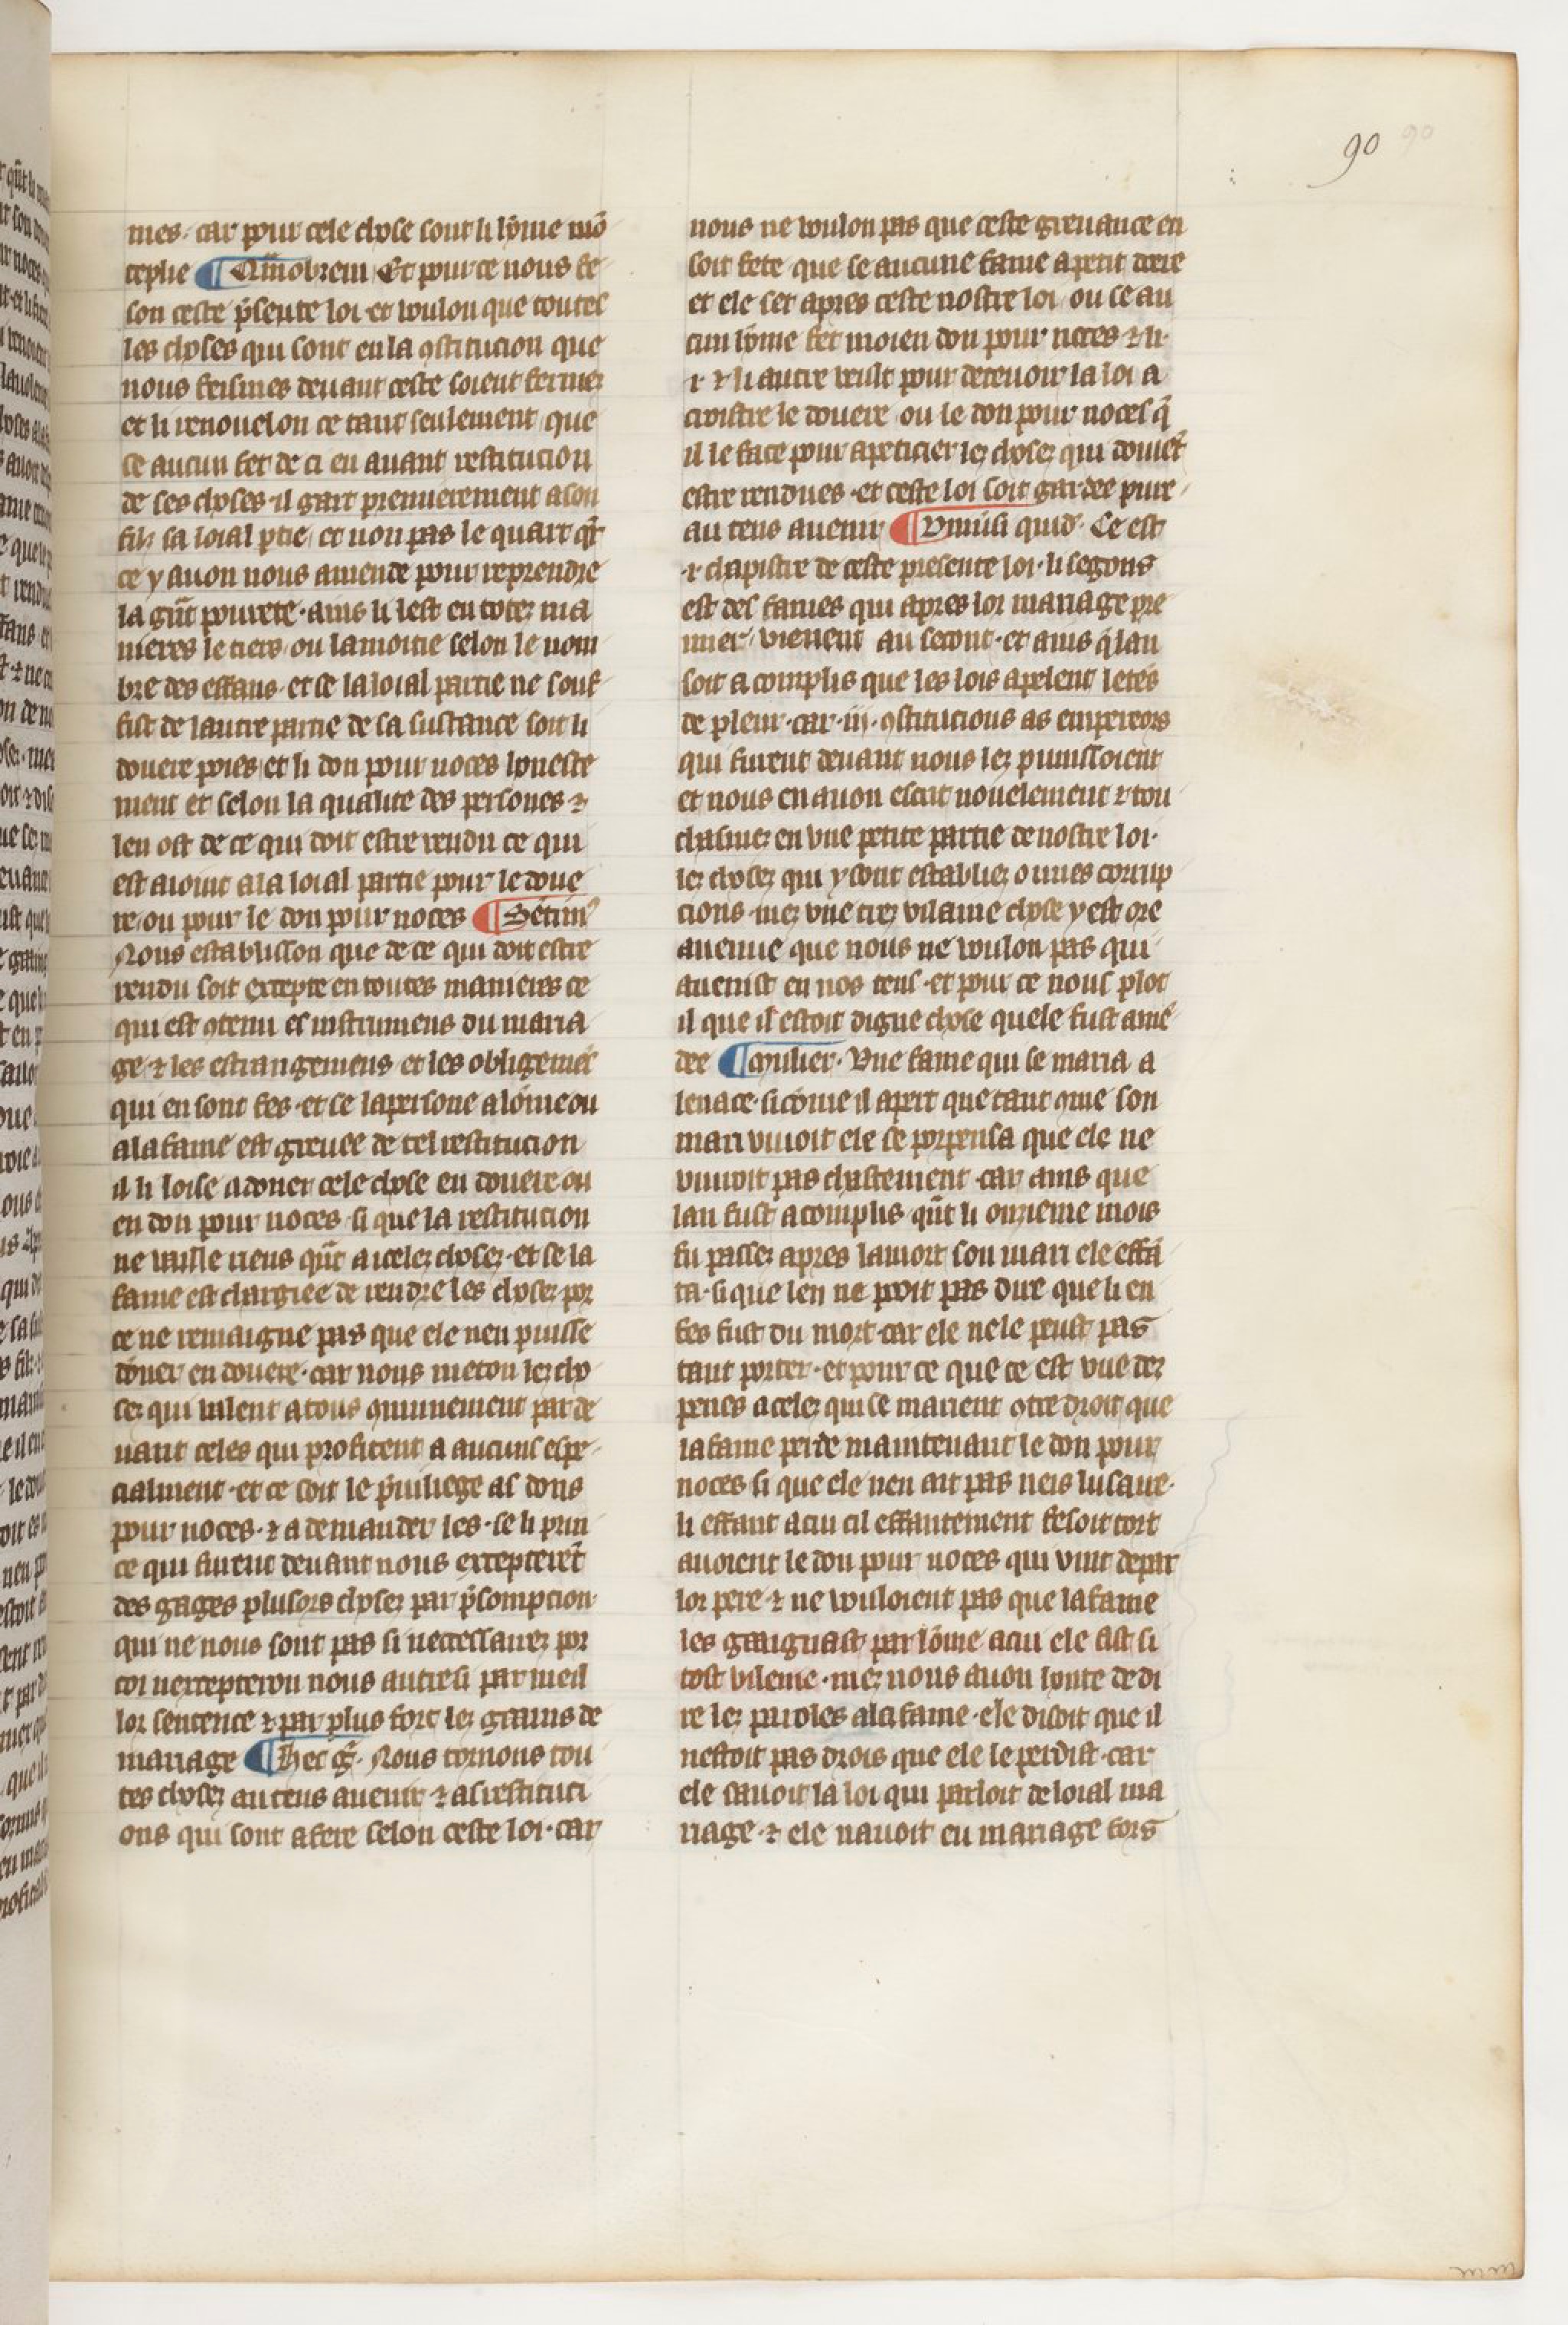 90
mes. car pour cele chose sont li hōme mō
teplie ¶ Qm̄obrem Et pour ce nous fe
son ceste p̄sente loi et voulon que toutes
les choses qui sont en la ꝯstitucion que
nous feismes devant ceste soient fermez
et li renouelon ce tant seulement que
se aucun fet de ci en auant restitucion
de ses choses il gart premierement a son
filz sa loial ptie et non pas le quart q̄r
ce y auon nous amende pour reprendre
la gn̄t pourete. ains li lest en totez ma
nieres le tiers ou la moitie selon le nom
bre des effans et se la loial partie ne souf
fist de lautre partie de sa sustance soit li
douere poies et li don pour noces honeste
ment et selon la qualite des persones ⁊
len ost de ce qui doit estre rendu ce qui
est aioint a la loial partie pour le doue
re ou pour le don pour noces ¶ Sētim᷒
Nous establisson que de ce qui doit estre
rendu soit excepte en toutes manieres ce
qui est ꝯtenu es instrumens du maria
ge ⁊ les estrangemens et les obligemēs
qui en sont fes et se la persone a lōme ou
a la fame est greuee de tel restitucion
il li loise a doner cele chose en douere ou
en don pour noces si que la restitucion
ne vaille riens qn̄t a icelez chosez et se la
fame est chargiee de rendre les chosez por
ce ne remaigne pas que ele nen puisse
dōner en douere. car nous meton lez cho
sez qui valent a tous ꝯmunement par de
uant celes qui profitent a aucuns espe
cialment et ce soit le p̄uiliege as dons
pour noces. ⁊ a demander les. se li prin
ce qui furent deuant nous excepterēt
des gages plusors chosez par p̄sompcion
qui ne nous sont pas si necessairez por
coi nexcepteron nous autresi par meil
lor sentence ⁊ par plus fort lez grains de
mariage ¶ Hec g̊. Nous tornons tou
tes chosez au tens auenir ⁊ as restituci
ons qui sont a fere selon ceste loi. car
nous ne voulon pas que ceste greuance en
soit fete que se aucune fame a petit doere
et ele set apres ceste nostre loi ou se au
cun hōme fet moien don pour noces ⁊ li
⁊ li autre veult pour deceuoir la loi a
croistre le douere ou le don pour noces q̄
il le face pour apeticier lez chosez qui doiuēt
estre rendues et ceste loi soit gardee pure
au tens auenir ¶ Vnius quid. Ce est
.i. chapistre de ceste presente loi. li segons
est des fames qui apres lor mariage pre
mier vienent au secont. et ains q̄ lan
soit acomplis que les lois apelent le tēs
de pleur. car .iij. ꝯstitucions as empereors
qui furent deuant nous lez punissoient
et nous en auon escrit nouelement ⁊ tou
chasmez en vne petite partie de nostre loi.
lez chosez qui y sont establiez o unes corrup
cions. mez vne trez vilaine chose y est ore
auenue que nous ne voulon pas qui
auenist en nos tens et pour ce nous plot
il que il estoit digne chose quele fust amē
dee ¶ Mulier. Vne fame qui se maria a
lenace. si cōme il apert que tant ꝯme son
mari viuoit ele se porpensa que ele ne
viuroit pas chastement. car ains que
lan fust acomplis qn̄t li onzieme mois
fu passez apres la mort son mari ele effā
ta. si que len ne poit pas dire que li en
fes fust du mort car ele ne le peust pas
tant porter. et pour ce que ce est vne dez
penes a celez qui se marient ꝯtre droit que
la fame perde maintenant le don pour
noces si que ele nen ait pas neis lusaire.
li effant a cui cil effantement fesoit tort
auoient le don pour noces qui vint depar
lor pere ⁊ ne vouloient pas que la fame
les gaaignast par lōme a cui ele fist si
tost vilenie. mez nous auon honte de di
re lez paroles a la fame. ele disoit que il
nestoit pas drois que ele le perdist. car
ele sauoit la loi qui parloit de loial ma
riage. ⁊ ele nauoit eu mariage fors